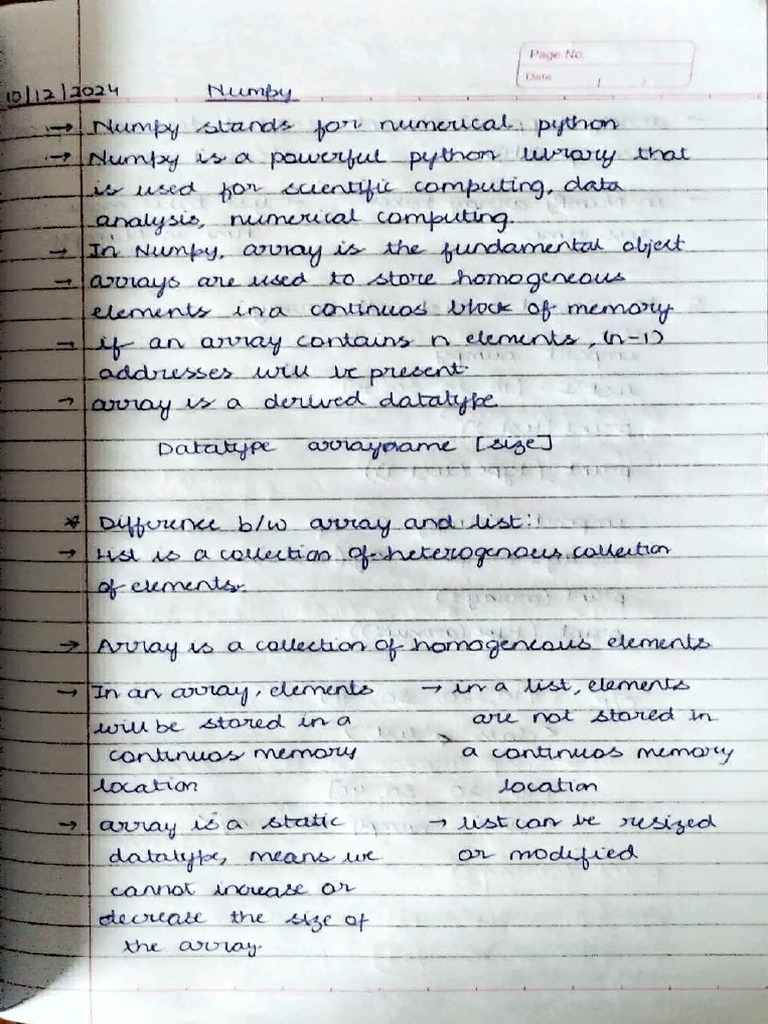 Page No.
Date
10/12/2024 Numpy
→ Numpy stands for numerical python
→ Numpy is a powerful python library that
is used for scientific computing, data
analysis, numerical computing.
→ In Numpy, array is the fundamental object
→ arrays are used to store homogeneous
elements in a continuos block of memory
→ if an array contains n elements, (n-1)
addresses will be present
→ array is a derived datatype
Datatype arrayname [size]
* Difference b/w array and list:
→ List is a collection of heterogenous collection
of elements.
→ Array is a collection of homogeneous elements
→ In an array, elements → in a list, elements
will be stored in a are not stored in
continuos memory a continuos memory
location location
→ array is a static → list can be resized
datatype, means we or modified
cannot increase or
decrease the size of
the array.